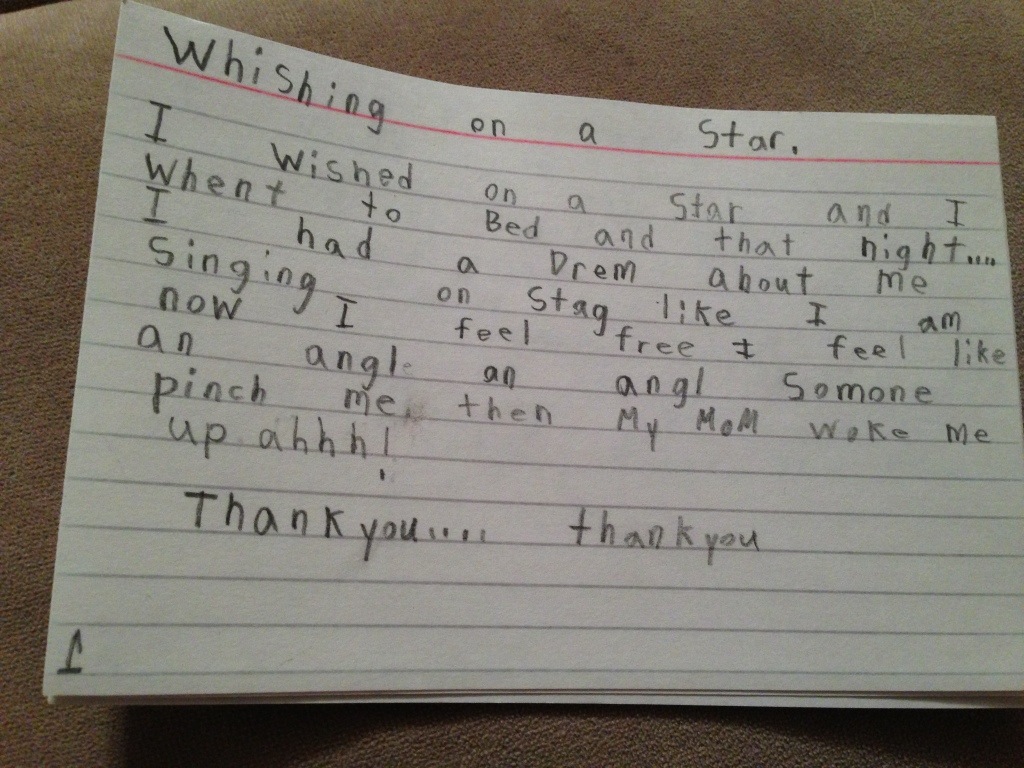 Whishing on a Star.
I Wished on a Star and I
Whent to Bed and that night....
I had a Drem about me
Singing on Stag like I am
now I feel free I feel like
an angl an angl Somone
pinch me. then My MoM woke me
up ahhh!
Thank you.... thank you
1